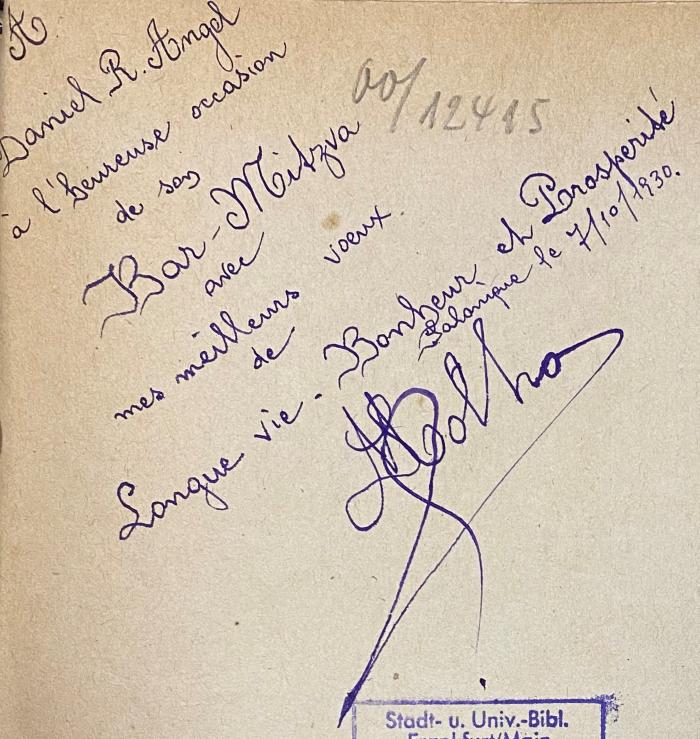 A
Daniel R. Angel
à l'heureuse occasion
de son
Bar-Mitzva
avec
mes meilleurs voeux.
de
Longue vie - Bonheur et Prosperité
Salonique le 7/10/1930.
Molho
00/12415
Stadt- u. Univ.-Bibl.
Frankfurt/Main